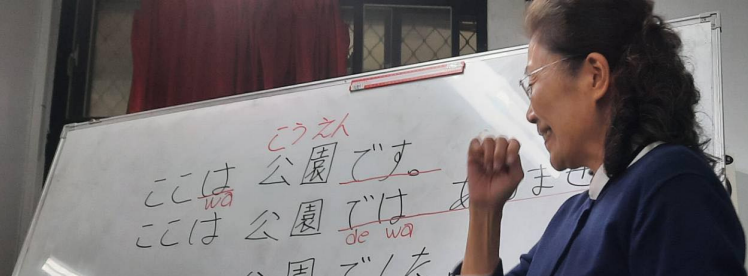 こうえん
ここは 公園です。
wa
ここは 公園では ありませ
de wa
公園でした